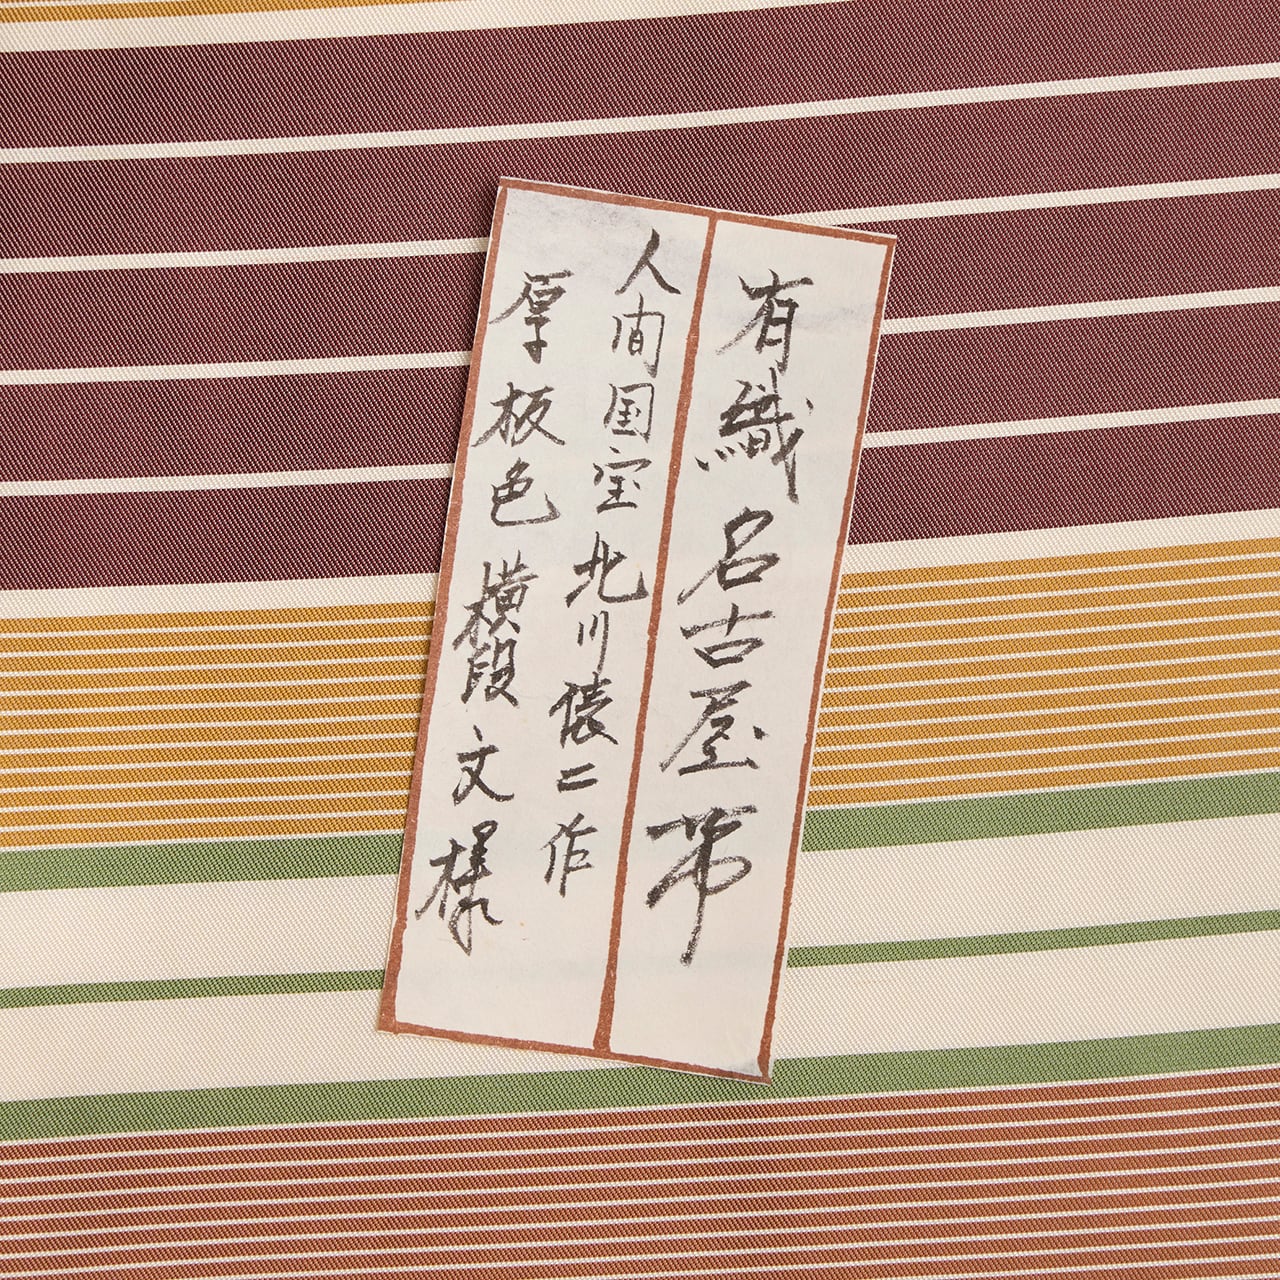 有織名古屋帯
人間国宝北川俵二作
厚板色横段文様